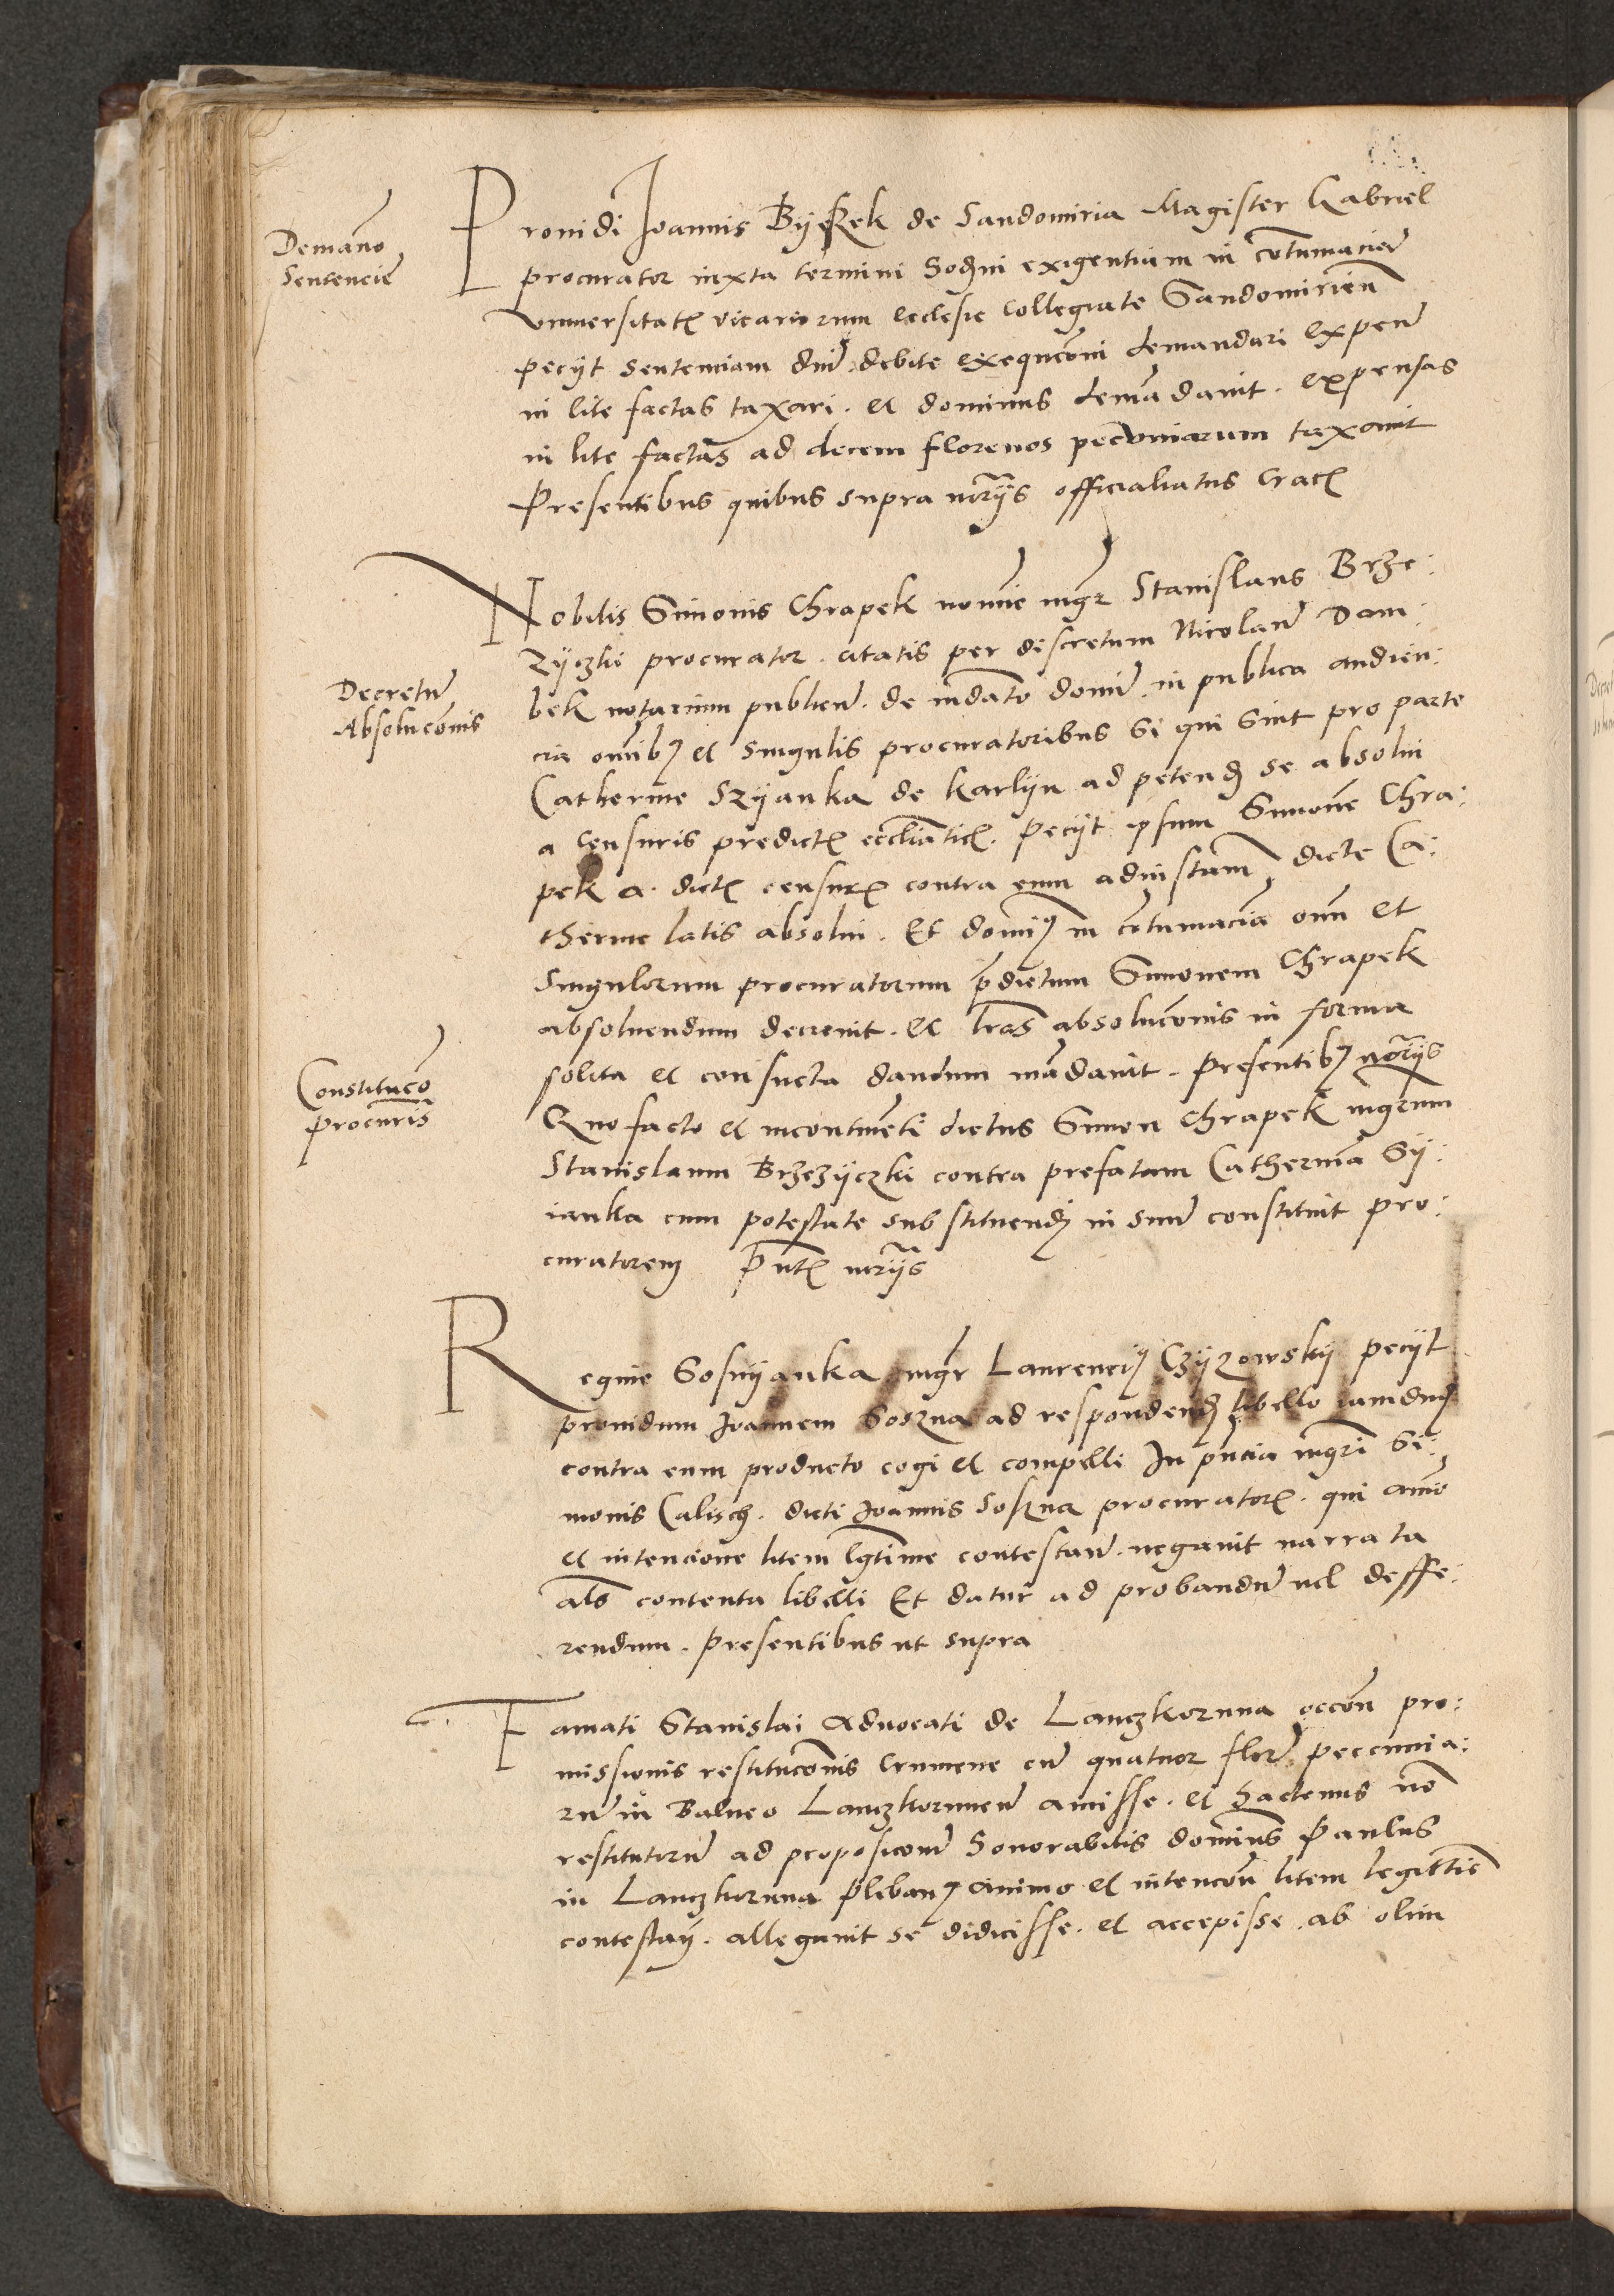 Demanō
Sentencie͂
Prouidi Joannis Byeſzek de Sandomiria Magister Gabriel
procurator iuxta termini hod̄ni exigentiam in cōtumaciam
vniuersitatis vicariorum ecclesie collegiate Sandomirien̄
pecyt sentenciam dn͂i debite exequcōni demandari expen͂
in lite factas taxari. et dominus demādauit. expensas
in lite factas ad decem florenos pecuniarum taxauit
Presentibus quibus supra norӯs officialiatus Crac̄
Decretu͂
Absolucōnis
Nobilis Simonis Chrapek nomine mgr̄ Stanislaus Brze:
zyczki procurator. citatis per discretum Nicolau͂ Dam:
bek notarium publicu͂. de mādato domi͂. in publica audien:
cia omībꝫ et singulis procuratoribus si qui sint pro parte
Catherine Szyanka de Karlyn ad petend̄ se absolui
a censuris predict̄ ecclīatic̄. Pecyt ipsum Simonē Chra:
pek a dict̄ censur̄ contra eum ad instam̄ dicte Ca:
therine latis absolui. Et dominꝫ in cōtumaciā om̄ et
singulorum procuratorum p̄dictum Simonem Chrapek
absoluendum decreuit. et lr̄as absolucōnis in forma
solita et consueta dandum mādauit. presentibꝫ norӯs
Constitucō
procur̄is
Quo facto et incontinēti dictus Simon Chrapek mgr̄um
Stanislaum Brzezyczki contra prefatam Catherinā Sy:
ianka cum potestate substituend̄ in suu͂ constituit pro:
curatorem p̄nt̄ norӯs
Regine Sosnyanka mgr̄ Laurenciꝫ Czyzowsky pecyt
prouidum Joannem Soszna ad respondend̄ libello iamdud̄
contra eum producto cogi et compelli In pn̄cia mgr̄i Si:
monis Calisch. dicti Joannis Soszna procurator̄. qui animo
et intencione litem lgt̄ime contestan͂. negauit narrata
alś contenta libelli Et datur ad probandu͂ vel deffe:
rendum. presentibus ut supra
Famati Stanislai aduocati de Lanczkorunna occōn̄ pro:
missionis restitucōnis crumene cu͂ quatuor flor̄ peccunia:
ru͂ in Balneo Lanczkorunen͂ amisse. et hactenus nō
restitutoru͂ ad proposicōn͂ honorabilis dominus Paulus
in Lanczkorunna plebanꝫ animo et intencōn̄ litem legittīe
contestan̄. allegauit se didicisse. et accepisse ab olim